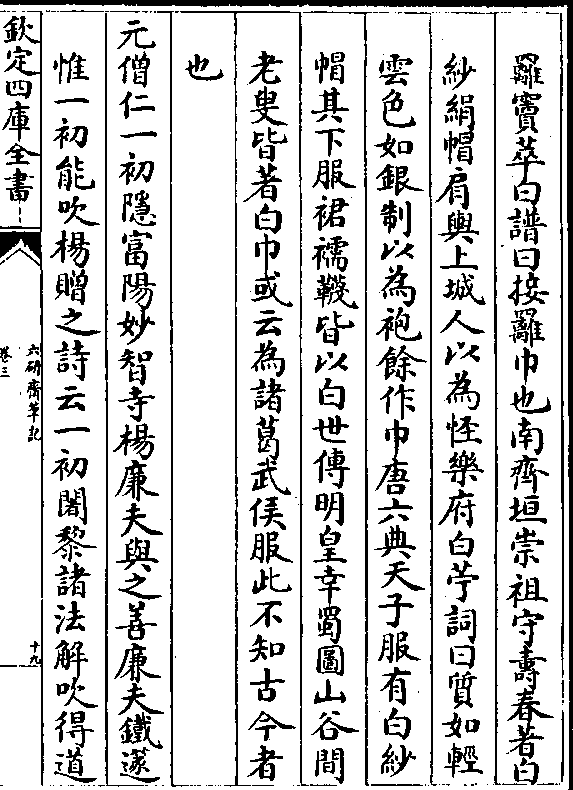 羅竇苹曰譜曰接羅巾也南齊垣崇祖守壽春著白
紗絹帽肩輿上城人以為恠樂府白苧詞曰質如輕
雲色如銀制以為袍餘作巾唐六典天子服有白紗
帽其下服裙襦韈皆以白世傳明皇幸蜀圖山谷間
老叟皆著白巾或云為諸葛武侯服此不知古今者
也
元僧仁一初隱富陽妙智寺楊廉夫與之善廉夫鐵篴
惟一初能吹楊贈之詩云一初闍黎諸法解吹得道
欽定四庫全書
六研齋筆記
卷三
十九